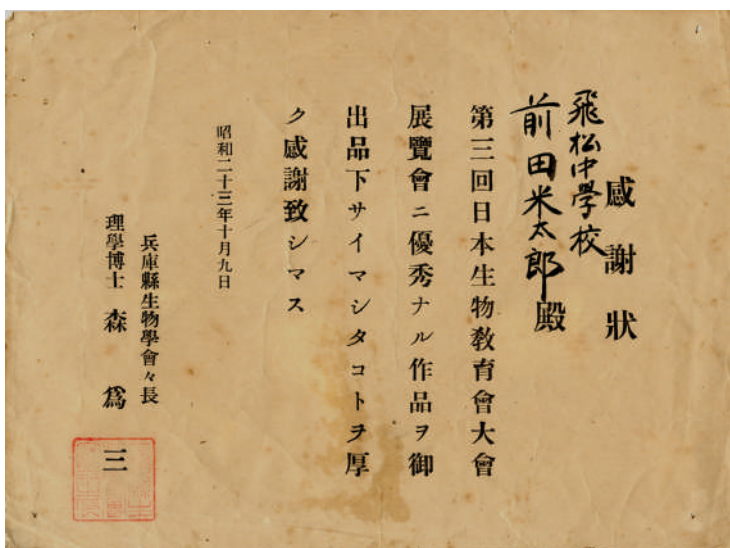 感謝狀
飛松中學校
前田米太郎殿
第三回日本生物敎育會大會
展覽會ニ優秀ナル作品ヲ御
出品下サイマシタコトヲ厚
ク感謝致シマス
昭和二十三年十月九日
兵庫縣生物學會々長
理學博士 森爲三